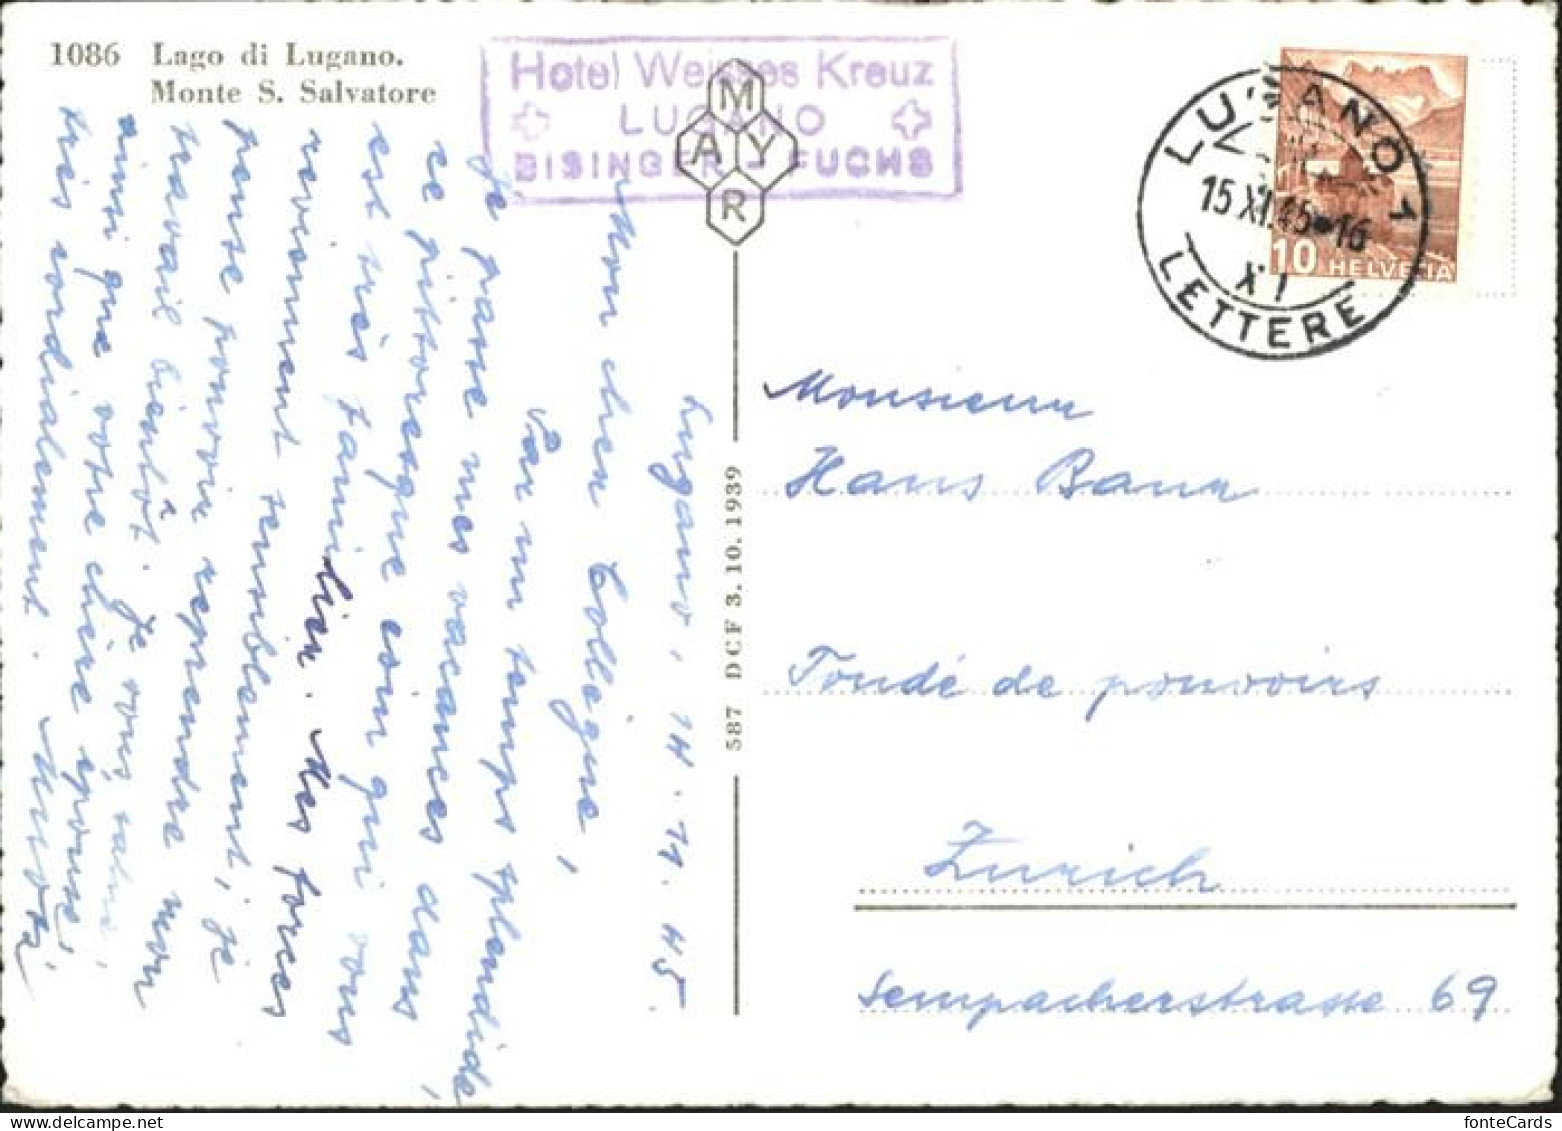 1086 Lago di Lugano.
Monte S. Salvatore
Hotel Weisses Kreuz
LUGANO
BISINGER-FUCHS
M
A Y
R
LUGANO 1
15.XI.45-16
XI
LETTERE
10 HELVETIA
587 DCF 3.10.1939
Lugano, 14.11.45.
Mon cher Collègue,
Par un temps splendide,
je passe mes vacances dans
ce pittoresque coin qui vous
est très familier. Mes forces
reviennent sensiblement, je
pense pouvoir reprendre mon
travail bientôt. Je vous salue,
ainsi que votre chère épouse,
très cordialement.
Monsieur
Hans Baur
Fondé de pouvoirs
Zurich
Sempacherstrasse 69
fonteCards